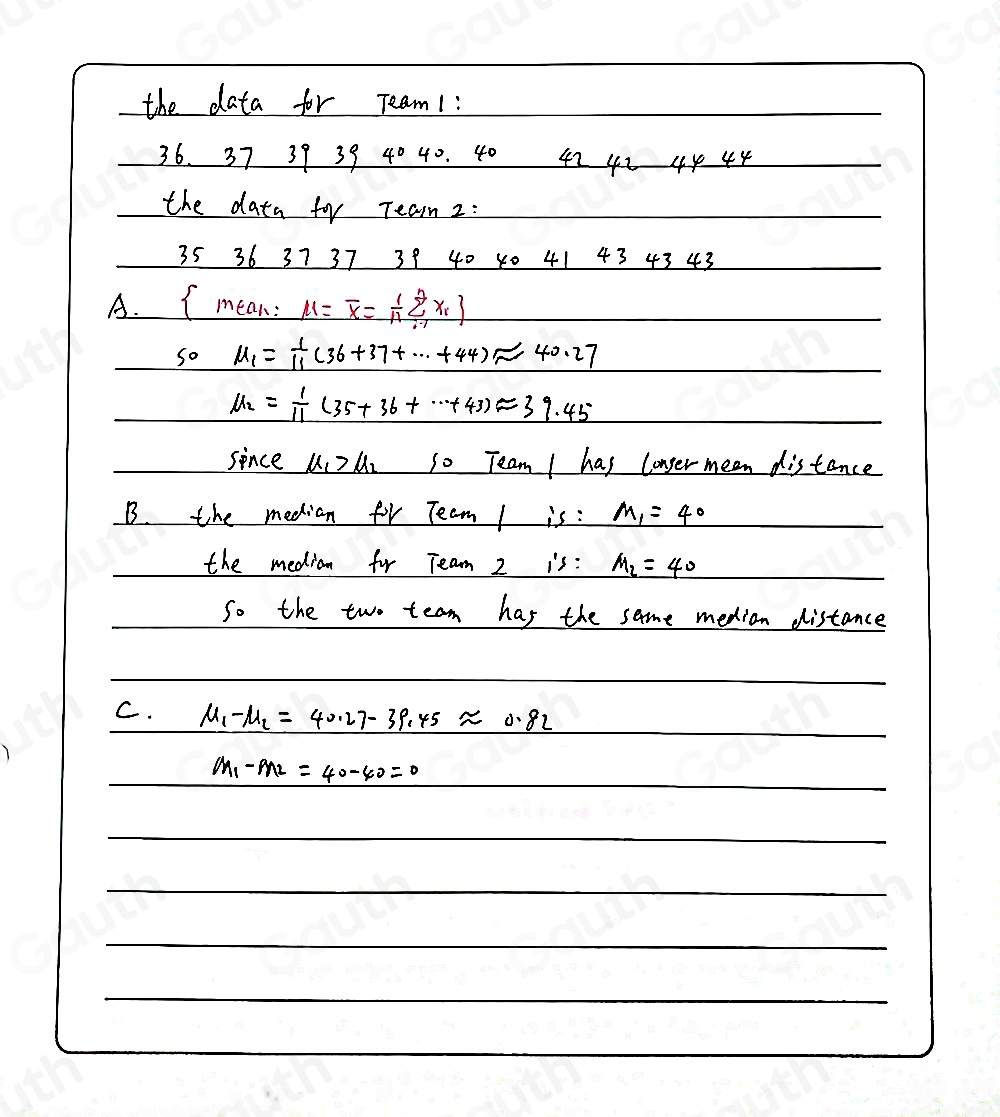 the data for Team 1:
36. 37 39 39 40 40. 40 42 42 44 44
the data for Team 2:
35 36 37 37 39 40 40 41 43 43 43
A. { mean: μ = x̄ = 1/n Σ xi }
so μ1 = 1/11 (36+37+ ⋯ +44) ≈ 40.27
μ2 = 1/11 (35+36+ ⋯ +43) ≈ 39.45
since μ1>μ2 so Team 1 has longer mean distance
B. the median for Team 1 is: M1 = 40
the median for Team 2 is: M2 = 40
So the two team has the same median distance
C. μ1-μ2 = 40.27-39.45 ≈ 0.82
m1-m2 = 40-40=0
Gauth